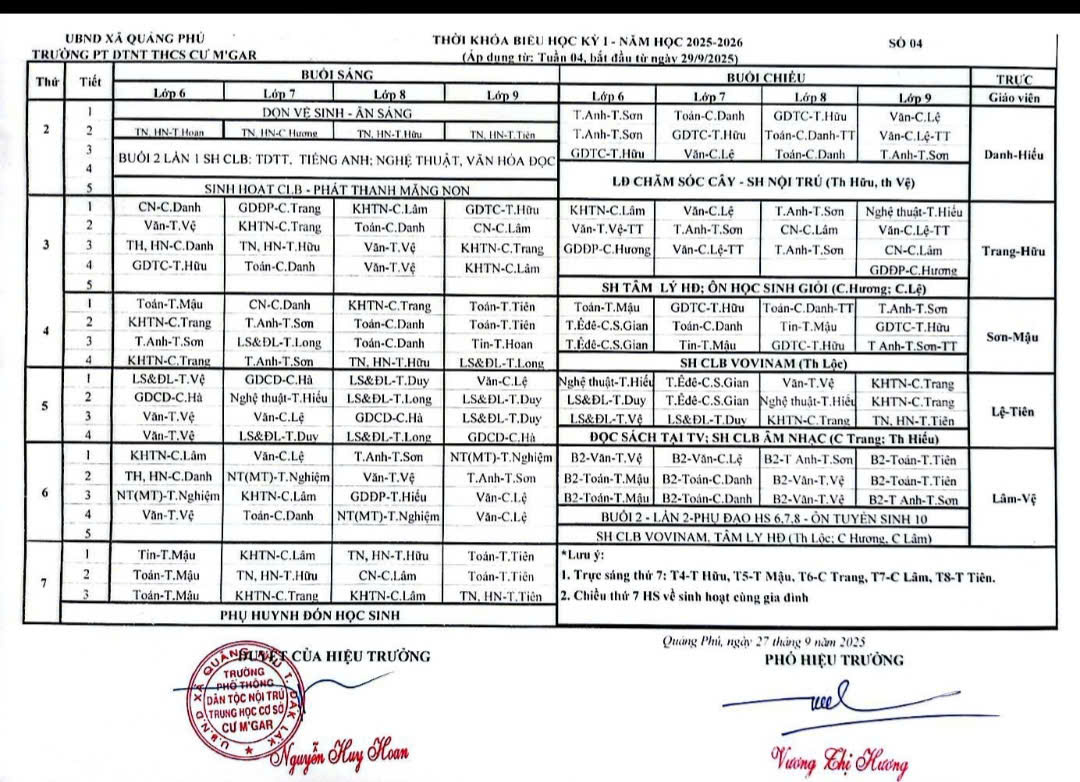 UBND XÃ QUẢNG PHÚ
TRƯỜNG PT DTNT THCS CƯ M'GAR
THỜI KHÓA BIỂU HỌC KỲ I - NĂM HỌC 2025-2026
SỐ 04
(Áp dụng từ: Tuần 04, bắt đầu từ ngày 29/9/2025)
Thứ Tiết BUỔI SÁNG BUỔI CHIỀU TRỰC
Lớp 6 Lớp 7 Lớp 8 Lớp 9 Lớp 6 Lớp 7 Lớp 8 Lớp 9 Giáo viên
2 1 DỌN VỆ SINH - ĂN SÁNG T.Anh-T.Sơn Toán-C.Danh GDTC-T.Hữu Văn-C.Lệ
2 TN, HN-T Hoan TN, HN-C Hương TN, HN-T.Hữu TN, HN-T.Tiên T.Anh-T.Sơn GDTC-T.Hữu Toán-C.Danh-TT Văn-C.Lệ-TT
3 BUỔI 2 LẦN 1 SH CLB: TDTT, TIẾNG ANH; NGHỆ THUẬT, VĂN HÓA ĐỌC GDTC-T.Hữu Văn-C.Lệ Toán-C.Danh T.Anh-T.Sơn Danh-Hiếu
4 LĐ CHĂM SÓC CÂY - SH NỘI TRÚ (Th Hữu, th Vệ)
5 SINH HOẠT CLB - PHÁT THANH MĂNG NON
3 1 CN-C.Danh GDĐP-C.Trang KHTN-C.Lâm GDTC-T.Hữu KHTN-C.Lâm Văn-C.Lệ T.Anh-T.Sơn Nghệ thuật-T.Hiếu
2 Văn-T.Vệ KHTN-C.Trang Toán-C.Danh CN-C.Lâm Văn-T.Vệ-TT T.Anh-T.Sơn CN-C.Lâm Văn-C.Lệ-TT
3 TH, HN-C.Danh TN, HN-T.Hữu Văn-T.Vệ KHTN-C.Trang GDĐP-C.Hương Văn-C.Lệ-TT T.Anh-T.Sơn CN-C.Lâm Trang-Hữu
4 GDTC-T.Hữu Toán-C.Danh Văn-T.Vệ KHTN-C.Lâm GDĐP-C.Hương
5 SH TÂM LÝ HĐ; ÔN HỌC SINH GIỎI (C.Hương; C.Lệ)
4 1 Toán-T.Mậu CN-C.Danh KHTN-C.Trang Toán-T.Tiên Toán-T.Mậu GDTC-T.Hữu Toán-C.Danh-TT T.Anh-T.Sơn
2 KHTN-C.Trang T.Anh-T.Sơn Toán-C.Danh Toán-T.Tiên T.Êđê-C.S.Gian Toán-C.Danh Tin-T.Mậu GDTC-T.Hữu
3 T.Anh-T.Sơn LS&ĐL-T.Long Toán-C.Danh Tin-T.Hoan T.Êđê-C.S.Gian Tin-T.Mậu GDTC-T.Hữu T Anh-T.Sơn-TT Sơn-Mậu
4 KHTN-C.Trang T.Anh-T.Sơn TN, HN-T.Hữu LS&ĐL-T.Long SH CLB VOVINAM (Th Lộc)
5 1 LS&ĐL-T.Vệ GDCD-C.Hà LS&ĐL-T.Duy Văn-C.Lệ Nghệ thuật-T.Hiếu T.Êđê-C.S.Gian Văn-T.Vệ KHTN-C.Trang
2 GDCD-C.Hà Nghệ thuật-T.Hiếu LS&ĐL-T.Long LS&ĐL-T.Duy LS&ĐL-T.Duy T.Êđê-C.S.Gian Nghệ thuật-T.Hiếu KHTN-C.Trang
3 Văn-T.Vệ Văn-C.Lệ GDCD-C.Hà LS&ĐL-T.Duy LS&ĐL-T.Vệ LS&ĐL-T.Duy KHTN-C.Trang TN, HN-T.Tiên Lệ-Tiên
4 Văn-T.Vệ LS&ĐL-T.Duy LS&ĐL-T.Long GDCD-C.Hà ĐỌC SÁCH TẠI TV; SH CLB ÂM NHẠC (C Trang; Th Hiếu)
6 1 KHTN-C.Lâm Văn-C.Lệ T.Anh-T.Sơn NT(MT)-T.Nghiệm B2-Văn-T.Vệ B2-Văn-C.Lệ B2-T Anh-T.Sơn B2-Toán-T.Tiên
2 TH, HN-C.Danh NT(MT)-T.Nghiệm Văn-T.Vệ T.Anh-T.Sơn B2-Toán-T.Mậu B2-Toán-C.Danh B2-Văn-T.Vệ B2-Toán-T.Tiên
3 NT(MT)-T.Nghiệm KHTN-C.Lâm GDĐP-T.Hiếu Văn-C.Lệ B2-Toán-T.Mậu B2-Toán-C.Danh B2-Văn-T.Vệ B2-T Anh-T.Sơn Lâm-Vệ
4 Văn-T.Vệ Toán-C.Danh NT(MT)-T.Nghiệm Văn-C.Lệ BUỔI 2 - LẦN 2-PHỤ ĐẠO HS 6,7,8 - ÔN TUYỂN SINH 10
5 SH CLB VOVINAM, TÂM LÝ HĐ (Th Lộc; C Hương, C Lâm)
7 1 Tin-T.Mậu KHTN-C.Lâm TN, HN-T.Hữu Toán-T.Tiên *Lưu ý:
2 Toán-T.Mậu TN, HN-T.Hữu CN-C.Lâm Toán-T.Tiên 1. Trực sáng thứ 7: T4-T Hữu, T5-T Mậu, T6-C Trang, T7-C Lâm, T8-T Tiên.
3 Toán-T.Mậu KHTN-C.Trang KHTN-C.Lâm TN, HN-T.Tiên 2. Chiều thứ 7 HS về sinh hoạt cùng gia đình
PHỤ HUYNH ĐÓN HỌC SINH
Quảng Phú, ngày 27 tháng 9 năm 2025
DUYỆT CỦA HIỆU TRƯỞNG
PHÓ HIỆU TRƯỞNG
U.B.N.D XÃ QUẢNG PHÚ T. ĐẮK LẮK
TRƯỜNG
PHỔ THÔNG
DÂN TỘC NỘI TRÚ
TRUNG HỌC CƠ SỞ
CƯ M'GAR
Nguyễn Huy Hoan
Vương Thị Hương